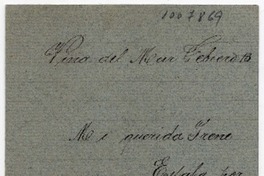 1007869
Viña del Mar Febrero 18
Mi querida Irene
Estaba por